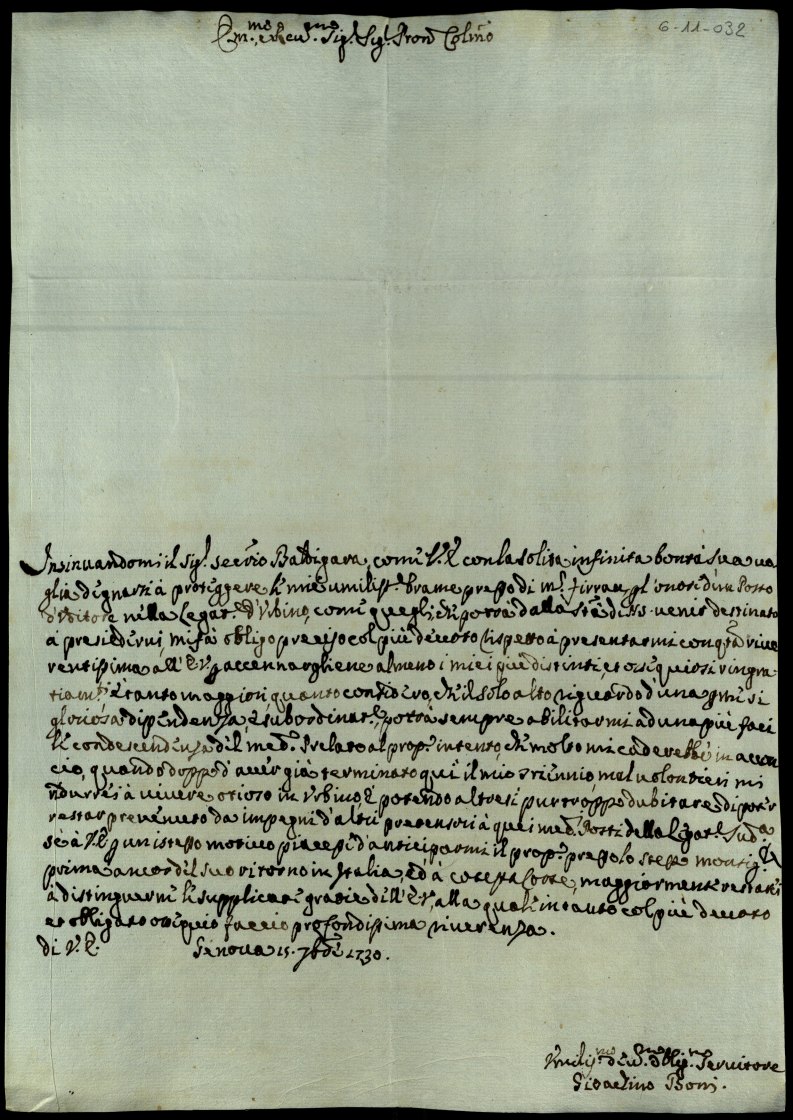 6-11-032
Em.mo e Reu.mo Sig.r Sig.r Pron Colmo
Insinuandomi il Sig.r Secrio Baldigara, come V.E. con la solita infinita bontà sua ua
glia dignarsi à proteggere le mie umiliss.e brame presso di m.r Firrau, pl'onore d'un Posto
d'Vditore nella Legat.e d'Vrbino, come quegli, che potrà dalla Stà di N.S. venir destinato
à presiederui, mi fà obligo preciso col più deuoto rispetto à presentarmi con qta riue
rentissima all'E.V. p accennargliene almeno i miei più distinti, et ossequiosi ringra
tiam.ti è tanto maggiori quanto considero, che il solo alto riguardo d'una p me si
gloriosa dipendenza, e subordinat.e, potrà sempre abilitarmi ad una più faci
le condescendenza del med.o Prelato al prop.o intento, che molto mi caderebbe in accon
cio, quando doppo d'auer già terminato qui il mio triennio, mal uolontieri mi
indurrei à viuere otioso in Vrbino, e potendo altresi pur troppo dubitare di poter
restar preuenuto da impegni d'altri pretensori à quei med.i Posti della Legat.e Sud.a
Se à V.E. p un istesso motiuo piacesse d'anticiparmi il prop.o presso lo stesso Monsig.r
prima ancor del suo ritorno in Italia, ed à cotesta Corte, maggiormente restarei
à distinguerne le supplicate gratie dell'E.V., alla quale in tanto col più deuoto
et obbligato ossequio faccio profondissima riuerenza.
di V.E. Genoua 15. 7bre 1730.
Vmiliss.mo Deu.mo Oblig.mo Seruitore
Gioachino Boni.